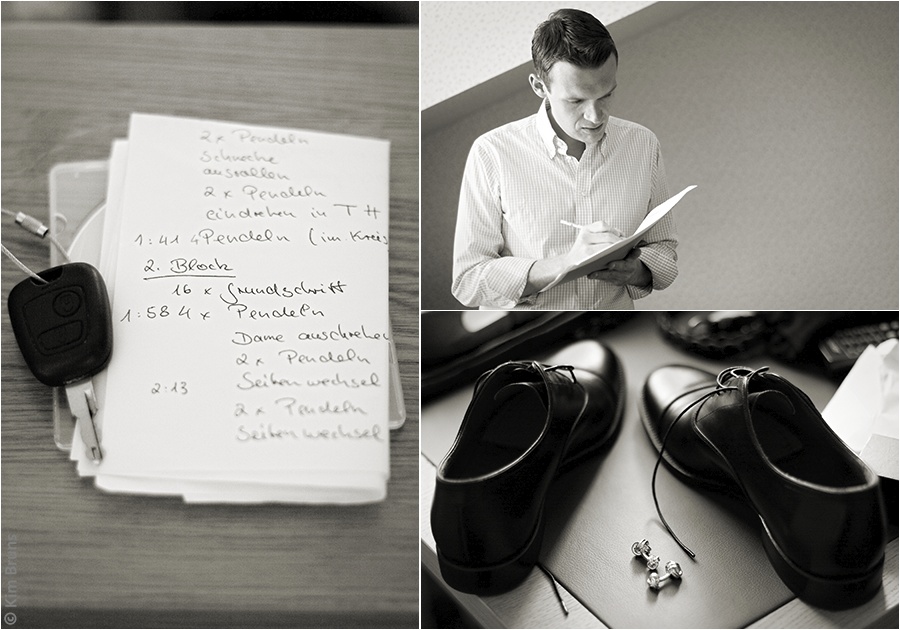 2 x Pendeln
Schnecke
ausrollen
2 x Pendeln
eindrehen in TH
1:41 4 Pendeln (im Kreis
2. Block
16 x Grundschritt
1:58 4 x Pendeln
Dame ausdrehen
2 x Pendeln
2:13 Seitenwechsel
2 x Pendeln
Seitenwechsel
© Kim Brems